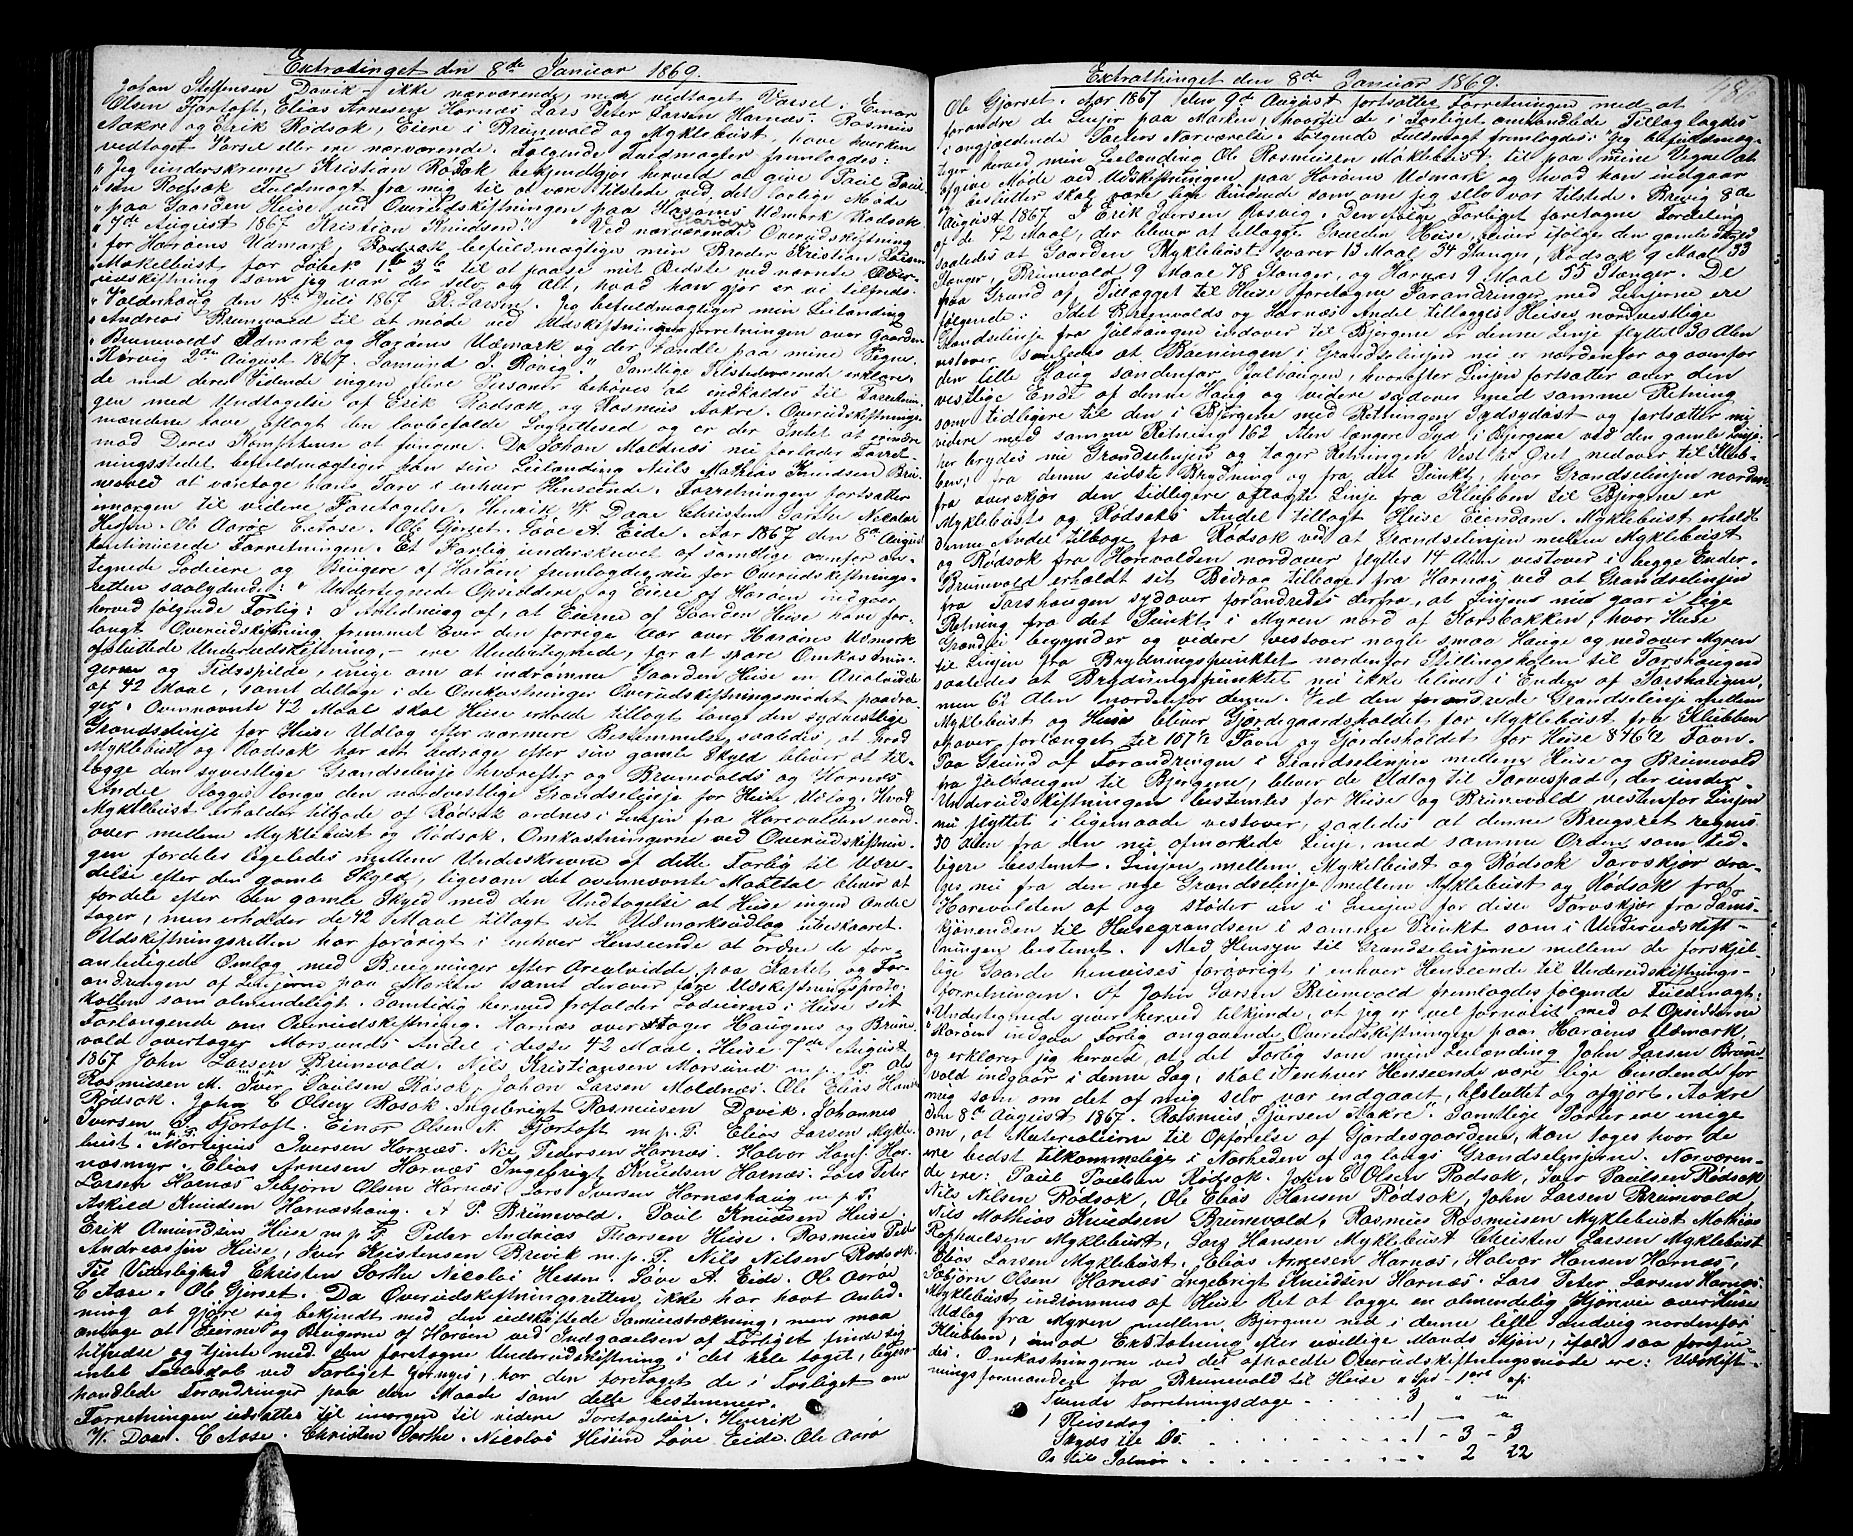 Extratinget den 8de Januar 1869.
Johan Steffensen Davik - ikke nærværende, men vedtaget Varsel. Einar
Olsen Fjørtoft, Elias Arnesen Harnæs Lars Peter Larsen Harnæs. Rasmus
Aakre og Erik Rødsæk, Eiere i Brunvold og Myklebust, have hverken
vedtaget Varsel eller ere nærværende. Følgende Fuldmagter fremlagdes:
"Jeg underskrevne Kristian Rødsæk bekjendtgjør herved at give Paul Paul-
"sen Rødsæk Fuldmagt fra mig til at være tilstede ved det lovlige Møde
"paa Gaarden Heise ved Overudskiftningen paa Harams Udmark Rødsæk
"7de August 1867 Kristian Knudsen". Ved nærværende Overudskiftning
"for Harams Udmark, Rødsæk befuldmægtiges min Broder Kristian Larsen
"Møkelbust for Løbet 1b 3b til at paase mit Bedste ved nævnte Over-
"udskiftning som jeg var der selv og alt, hvad han gjør er vi tilfreds.
"Valdershoug den 15de Juli 1867. R. Larsen. Jeg befuldmægtiger min Leilænding
"Andreas Brunvold til at møde ved Udskiftningsforretningen over Gaarden
"Brunvolds Udmark og Harams Udmark og der handle paa mine Vegne.
Rørvig 2den August 1867. Samund J. Røvig". Samtlige Tilstedeværende erklære-
de med deres Vidende ingen flere Personer behøves at indkaldes til Forretnin-
gen med Undtagelse af Erik Rødsæk og Rasmus Aakre. Overudskiftnings-
mændene have aflagt den lovbefalede Lagrettesed og er der Intet at erindre
mod Deres Komptense at fungere. Da Johan Moldnæs nu forlader Forret-
ningsstedet befuldmægtiger han sin Leilænding Neils Mathias Knudsen Bru-
nevold at varetage hans Tarv i enhver Henseende. Forretningen fortsætter
imorgen til videre Foretagelse. Henrik W. Daae Christen Sørthe Nicolai
Hessen. Ole Aarøe E. Aase. Ole Gjørset. Løve A. Eide. Aar 1867 den 8de August
kontinuerede Forretningen. Et Forlig underskrevet af samtlige ovenfor an-
tegnede Lodeiere og Brugere af Haram fremlagdes nu for Overudskiftnings-
retten saalydende: "Undertegnede Opsiddere og Eiere af Haram indgaar
herved følgende Forlig: I Anledning af, at Eierne af Gaarden Heise have for-
langt Overudskiftning fremmet over den forrige Aar over Harams Udmark
afsluttede Underudskiftning, - ere Undertegnede, for at spare Omkostnin-
gerne og Tidsspilde, enige om at indrømme Gaarden Heise en Arealvidde
af 42 Maal, samt deltage i de Omkostninger Overudskiftningsmødet paadra-
ger. Ovennævnte 42 Maal skal Heise erholde tillagt langs den sydvestlige
Grændselinje for Heise Udlæg efter nærmere Bestemmelse saaledes, at hvad
Myklebust og Rødsæk har at bidrage efter sin gamle Skyld bliver at til-
lægge den syvestlige Grændselinje hvorefter og Brunevolds og Harnæs
Andel lægges langs den nordvestlige Grændselinje for Heise Udlæg. Hvad
Myklebust erholder tilbage af Rødsæk ordnes i Linjen fra Harevalden nord-
over mellem Myklebust og Rødsæk. Omkostningerne ved Overudskiftnin-
gen fordeles ligeledes mellem Underskrevne af dette Forlig til Udre-
delse efter den gamle Skyld, ligesom det ovennævnte Maaltal bliver at
fordele efter den gamle Skyld med den Undtagelse at Heise ingen Andel
tager, men erholder de 42 Maal tillagt sit Udmarksudlæg ubeskaaret.
Udskiftningsretten har forøvrigt i enhver Henseende at ordne de for-
anledigede Omlæg med Beregninger efter Arealvidde paa Kartet og For-
andringen af Linjerne paa Marken samt derover føre Udskiftningsproto-
kollen som almindeligt. Samtidig hermed frafalder Lodeierne i Heise sit
Forlangende om Overudskiftning. Harnæs overtager Haugens og Brune-
vold overtager Morsunds Andel i desse 42 Maal. Heise 7de August
1867 John Larsen Brunevold. Nils Kristiansen Morsund m. p. P. Ole
Rasmusen M. Iver Paulsen Røsok, Johan Larsen Moldnæs. Ole Elias Hansen
Rødsok. John E Olsen Røsok. Ingebrigt Rasmusen Davik. Johannes
Iversen S. Fjørtoft. Einar Olsen N. Fjørtoft m. p. P. Elias Larsen Mykle-
bust. Martinus Iversen Harnæs. Nils Pedersen Harnæs. Halvor Hansen Har-
næsmyr. Elias Arnesen Harnæs Ingebrigt Knudsen Harnæs. Lars Peter
Larsen Harnæs Asbjørn Olsen Harnæs Lars Iversen Harnæshaug m. p. P.
Askild Knudsen Harnæshaug. A P. Brunevold. Paul Knudsen Heise.
Erik Amundsen Heise m. p. P. Peder Andreas Thorsen Heise. Rasmus Peter
Andreassen Heise, Iver Kristensen Brevik m. p. P. Nils Nilsen Rødsok.
Til Vitterlighed Christen Sørthe Nicolai Hessen. Løve A. Eide. Ole Aarøe
E Aase. Ole Gjørset. Da Overudskiftningsretten ikke har havt Anled-
ning at gjøre sig bekjendt med den udskiftede Jamnestrækning, men maa
antage at Eierne og Brugerne af Haram ved Indgaaelsen af Forliget finde sig
tilfredse og tjente med den foretagne Underudskiftning i det hele taget, ligesom
intet Lodeskab ved Forliget fornyes, har den foretaget de i Forliget om
handlede Forandringer paa den Maade som dette bestemmer.
Forretningen udsattes til imorgen til videre Foretagelse. Henrik
W. Daae. E Aase. Christen Sørthe. Nicolai Hessen Løve Eide. Ole Aarø
Extrathinget den 8de Januar 1869.
Ole Gjørset. Aar 1867 den 9de August fortsattes Forretningen med at
forandre de Linjer paa Marken, hvortil de i Forliget omhandlede Tillæg lagdes
i angjældende Parters Nærværelse. Følgende Fuldmagt fremlagdes: "Jeg befuldmæg-
tiger herved min Leilænding Ole Rasmusen Møklebust til paa mine Vegne at
afgive Møde ved Udskiftningen paa Harams Udmark og hvad han indgaar
og beslutter skal være lige bindende som om jeg selv var tilstede. Brevig 8de
August 1867. J Erik Iversen Rosvig. Den ifølge Forliget foretagne Fordeling
af de 42 Maal, der bliver at tillægge Gaarden Heise, giver ifølge den gamle Skyld
saaledes at Gaarden Myklebust svarer 13 Maal 34 Stanger, Rødsok 9 Maal 33
Stanger, Brunevold 9 Maal 78 Stanger, og Harnæs 9 Maal 55 Stanger. De
paa Grund af Tillægget til Heise foretagne Forandringer med Linjerne ere
følgende: Idet Brunevolds og Harnæs Andel tillægges Heises nordvestlige
Grændselinje fra Julhaugen indover til Bjergene er denne Linje flyttet 30 Alen
vestover saaledes at Bøiningen i Grændselinjen nu er nordenfor og ovenfor
den lille Haug søndenfor Julhaugen, hvorefter Linjen fortsætter over den
vestlige Ende af denne Haug og videre sydover med samme Retning
som tidligere til den i Bjergene med Retningen Sydsydøst og fortsætter nu
videre med samme Retning 162 Alen længere Syd i Bjergene ved den gamle Linje.
her brydes nu Grændselinjen og tager Retningen Vest til Øret nedover til Klub-
ben, fra denne sidste Brydning og fra det Punkt, hvor Grændselinjen norden-
fra overskjør den tidligere aflagte Linje fra Klubben til Bjergene er
Myklebusts og Rødsoks Andel tillagt Heise Eiendom. Myklebust erholdt
denne Andel tilbage fra Rødsok ved at Grændselinjen mellem Myklebust
og Rødsok fra Harevalden nordover flyttes 14 Alen vestover i begge Ender.
Brunevold erholdt sit Bidrag tilbage fra Harnæs ved at Grændselinjen
fra Torshaugen sydover forandredes derfra, at Linjen nu gaar i lige
Retning fra det Punkt i Myren nord af Korsbakken, hvor Heise
Grændse begynder og videre vestover nogle smaa Hauge og nedover Myren
til Linjen fra Brydningspunktet nordenfor Stillingskolen til Torshaugen
saaledes at Brydningspunktet nu ikke bliver i Enden af Torshaugen,
men 62 Alen nordenfor denne. Ved den forandrede Grændselinje mellem
Myklebust og Heise bliver Gjærdegaardsholdet for Myklebust fra Klubben
opover forlænget til 157½ Favn og Gjærdesholdet for Heise 846½ Favn.
Paa Grund af Forandringen i Grændselinjen mellem Heise og Brunevold
fra Julhaugen til Bjergene, bliver de Udlæg til Torvespad, der under
Underudskiftningen bestemtes for Heise og Brunevold vestenfor Linjen
nu flyttet i ligemaade vestover, saaledes at denne Brugsret regnes
30 Alen fra den nu afmærkede Linje, med samme Orden som tid-
ligere bestemt. Linjen mellem Myklebust og Rødsok Torvskjær dra-
ges nu fra den nye Grændselinje mellem Myklebust og Rødsok fra
Harevalden af og støder an i Linjen for disse Torvskjær fra Jams-
kjønenden til Heisegrændsen i samme Punkt som i Underudskift-
ningen bestemt. Med Hensyn til Grændselinjerne mellem de forskjel-
lige Gaarde henvises forøvrigt i enhver Henseende til Underudskiftnings-
forretningen. Af John Larsen Brunevold fremlagdes følgende Fuldmagt:
"Undertegnede giver herved tilkjende, at jeg er vel fornøiet med at Opsidderne
"Haram indgaa Forlig angaaende Overudskiftningen paa Harams Udmark,
og erklærer jeg herved, at det Forlig som min Leilænding John Larsen Brune-
vold indgaar i denne Sag, skal i enhver Henseende være lige bindende for
mig som om det af mig selv var indgaaet, besluttet og afgjort. Aakre
den 8de August 1867. Rasmus Sjursen Aakre. Samtlige Parter ere enige
om, at Materialierne til Opførelse af Gjærdesgaardene, kan tages hvor de
ere bedst tilkommelige i Nærheden af og langs Grændselinjerne. Nærværen-
de ere: Paul Paulsen Rødsok. John E Olsen Rødsok, Iver Paulsen Rødsok
Nils Nilsen Rødsok, Ole Elias Hansen Rødsok, John Larsen Brunevold,
Nils Mathias Knudsen Brunevold, Rasmus Rasmusen Myklebust Mathias
Roppaelsen Myklebust, Lars Hansen Myklebust Christen Larsen Myklebust
Elias Larsen Myklebust, Elias Arnesen Harnæs, Halvor Hansen Harnæs,
Asbjørn Olsen Harnæs Ingebrigt Knudsen Harnæs. Lars Peter Larsen Harnæs.
Myklebust indrømmes af Heise Ret at lægge en almendelig Kjørevei over Heise
Udlæg fra Myren mellem Bjergene ned i denne lefte Sandvig nordenfor
Klubben, imod Erstatning efter uvillige Mænds Skjøn, ifald saa forefin-
des. Omkostningerne ved det afholdte Overudskiftningsmøde ere: Udskift-
ningsformanden fra Brunevold til Heise " Spd - 1 ort " ß:
Tvende Forretningsdage . . . . 3 " - "
1 Reisedag . . . . . . 1 - " "
Skyds til Os. . . . . . . 1 - 3 - 3
Os til Solnør . . . . . . 2 22